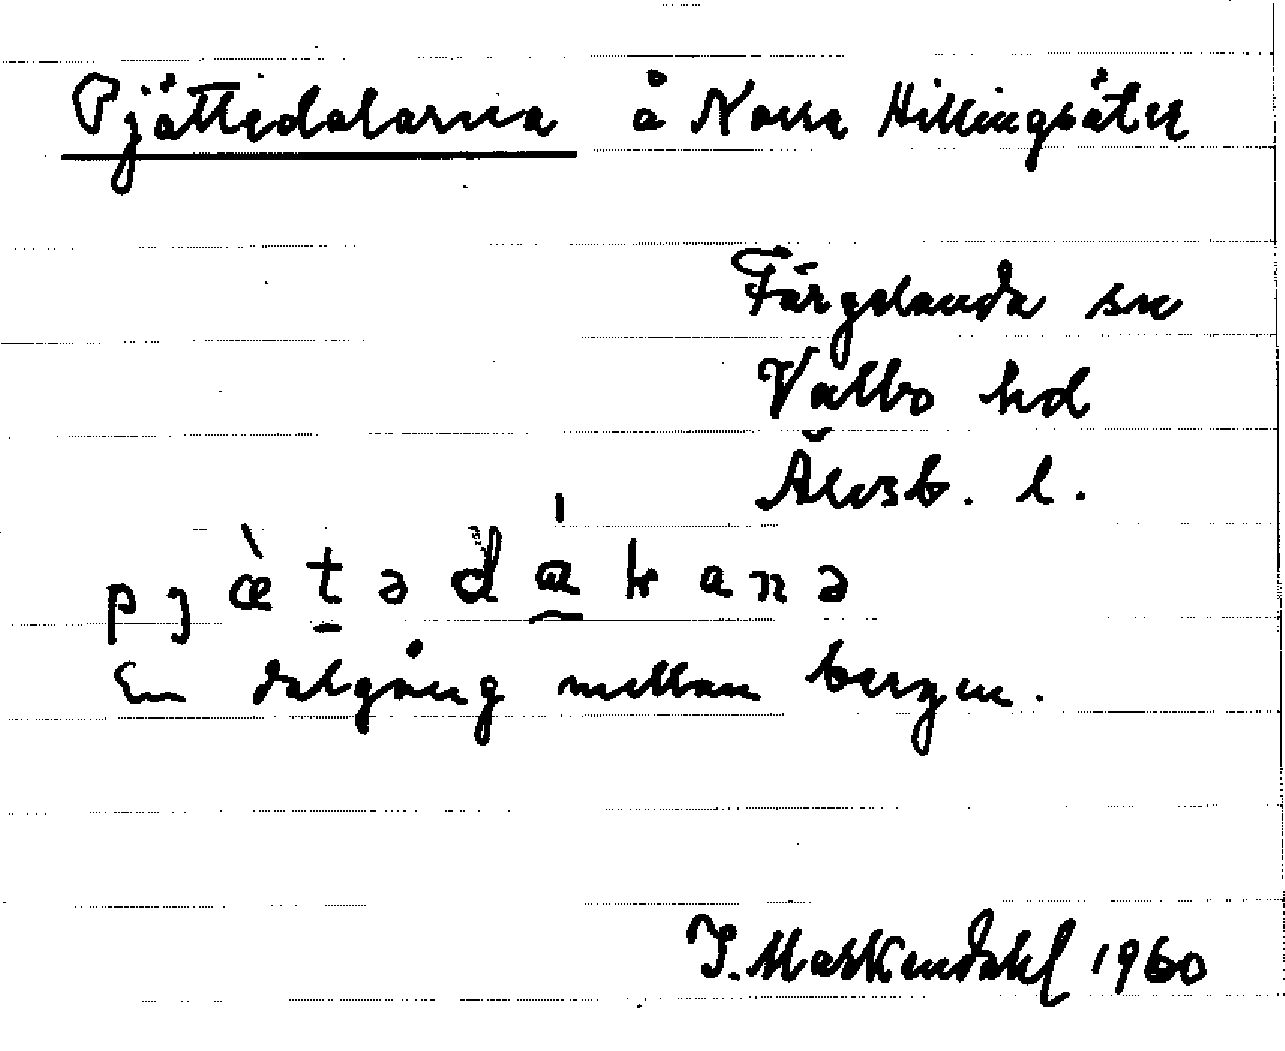 Pjättedalarna å Norra Hillingsäter
Färgelanda sn
Valbo hd
Älvsb. l.
pjæ̀tədáɫanə
En dalgång mellan bergen.